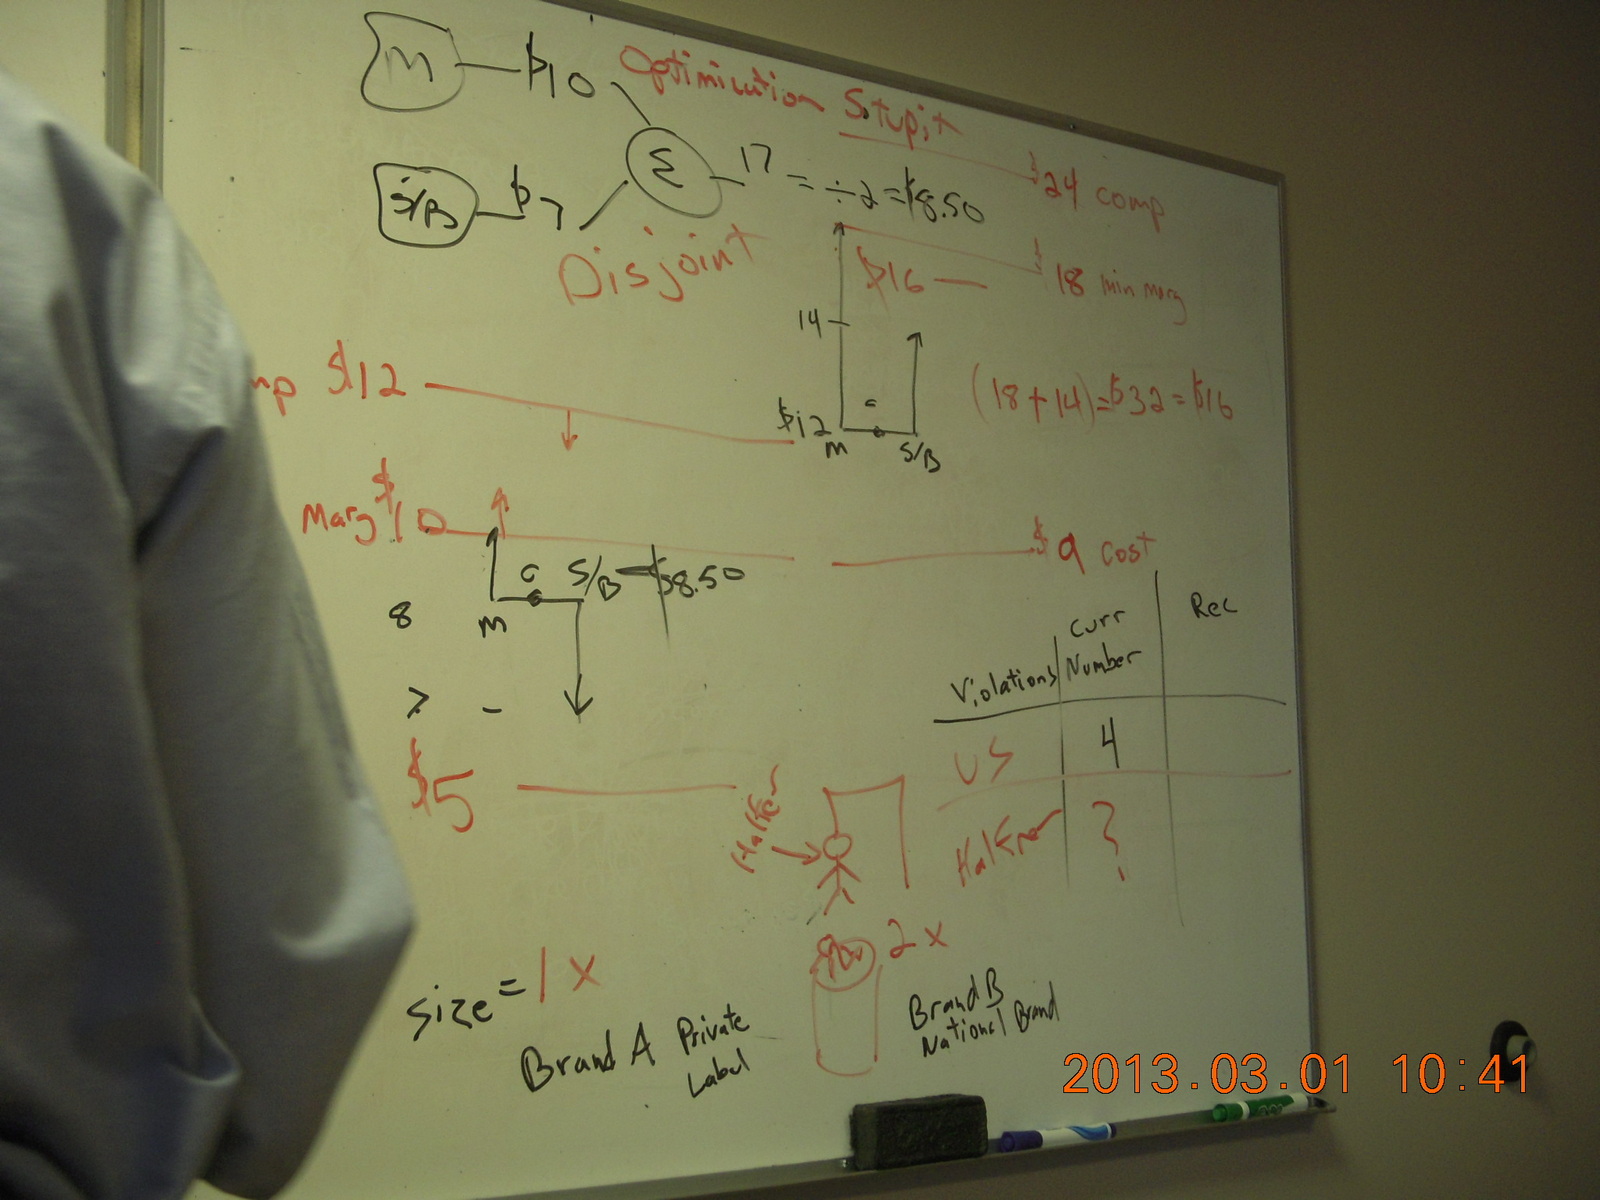 M — $10
Optimization Stupit
S/B — $7
Σ — 17 = ÷2 = $8.50
$24 comp
Disjoint
$16 —
$18 min marg
14
mp $12
$12
c
M
S/B
(18+14)=$32=$16
Marg $10
$9 cost
c
S/B — $8.50
8
M
7 -
Violations
Curr Number
Rec
US
4
$5
Halfner
?
size = 1x
2x
Brand A Private
Label
Brand B
National Brand
2013.03.01 10:41